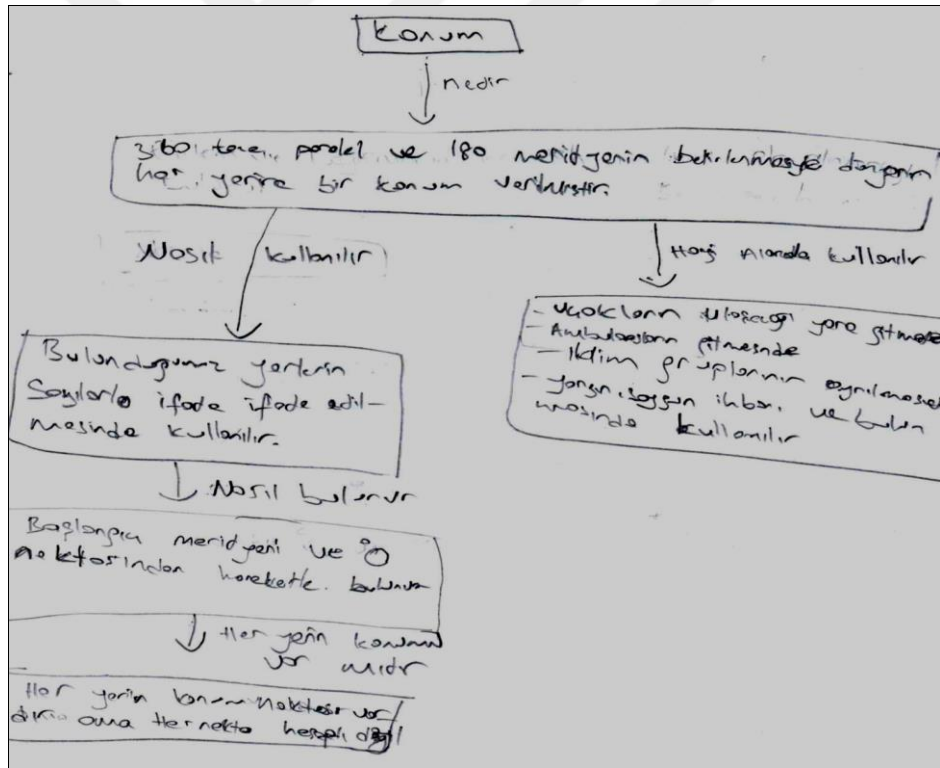 Konum
nedir
360 tane paralel ve 180 meridyenin belirlenmesiyle dünyanın
her yerine bir konum verilmiştir.
Nasıl kullanılır
Hangi Alanda kullanılır
Bulunduğumuz yerlerin
Sayılarla ifade ifade edil-
mesinde kullanılır.
- uçakların ulaşacağı yere gitmesi
- Ambulansların gitmesinde
- İklim gruplarının ayrılması
- yangın, soygun ihbarı, ve bulun
masında kullanılır
Nasıl bulunur
Başlangıç meridyeni ve
noktasından hareketle bulunur
Her yerin konumu
var mıdır
Her yerin konum noktası var
ama Her nokta değil